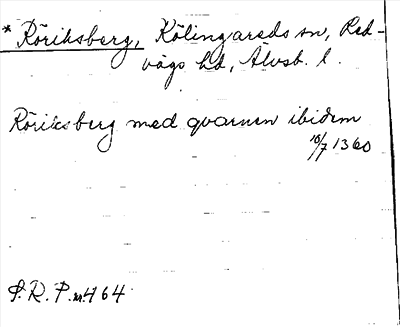 * Röriksberg, Kölingareds sn, Red-
vägs hd, Älvsb. l.
Röriksberg med qvarnen ibidem
16/7 1360
S. R. P. nr 464